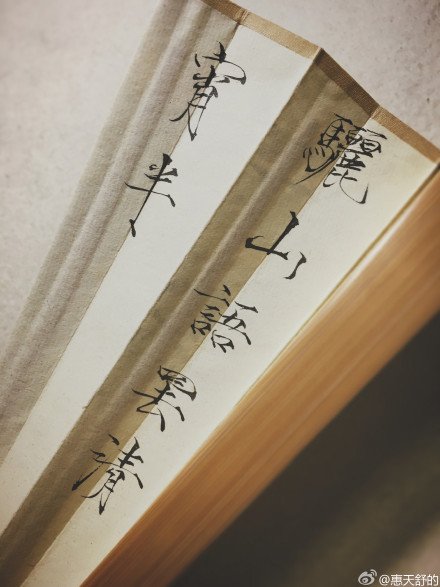 驪山語罷清
宵半
@惠天舒的